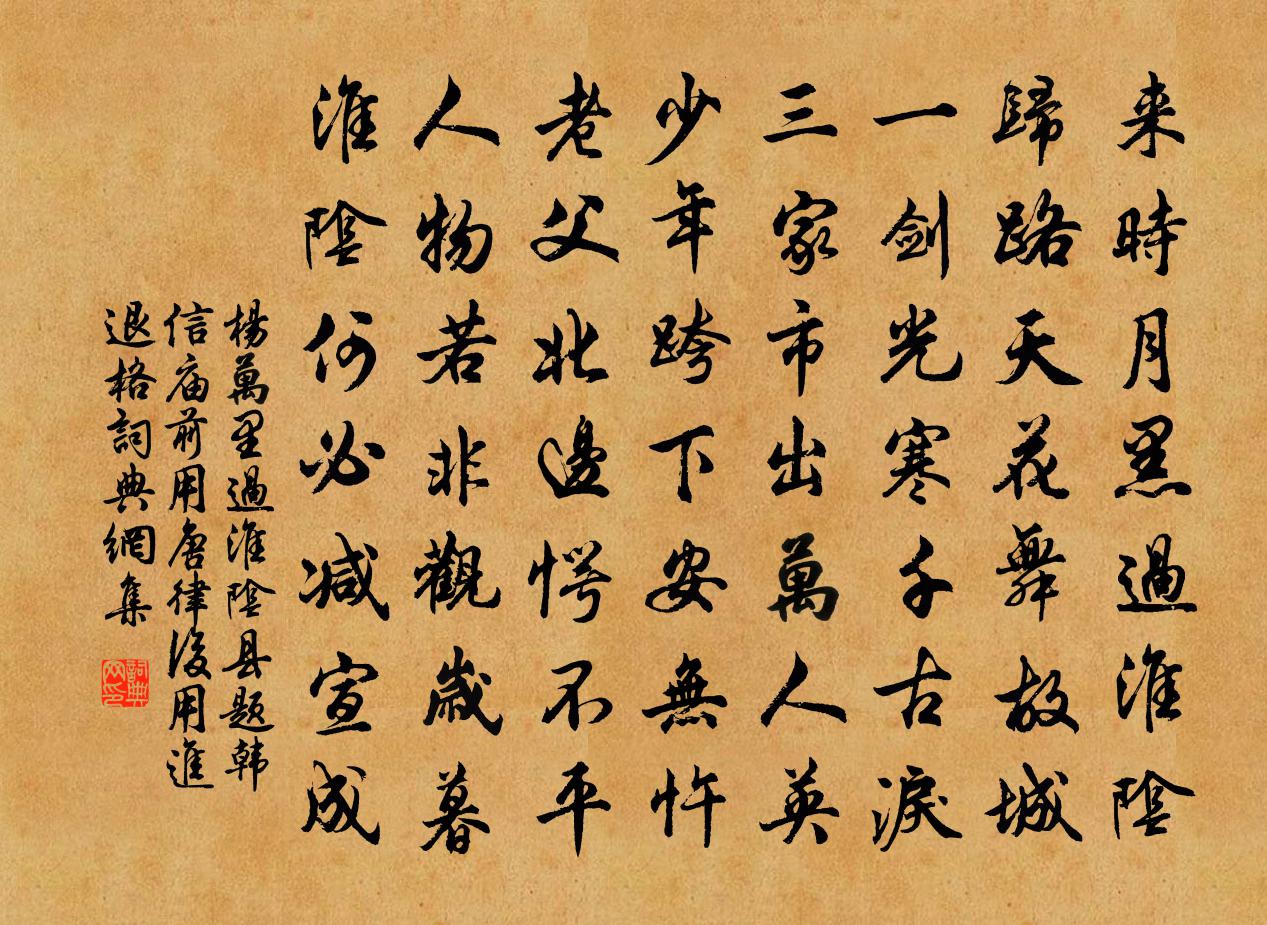 来時月黑過淮陰
歸路天花舞故城
一劍光寒千古淚
三家市出萬人英
少年跨下安無忤
老父圯邊愕不平
人物若非觀歲暮
淮陰何必减宣成
楊萬里過淮陰县题韩
信庙前用唐律後用進
退格詞典網集
詞典网印